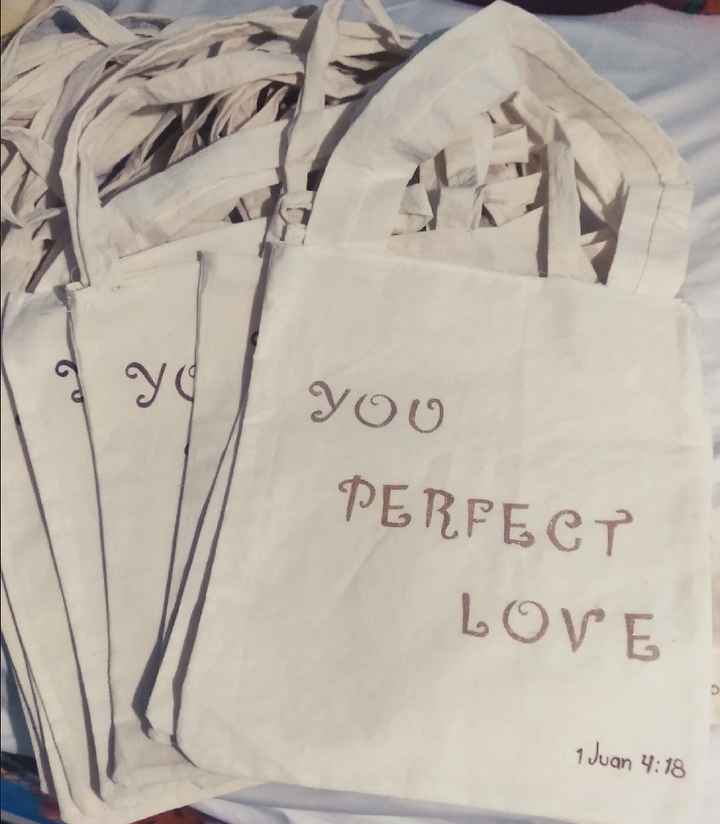 YOU
PERFECT
LOVE
1 Juan 4:18
YO